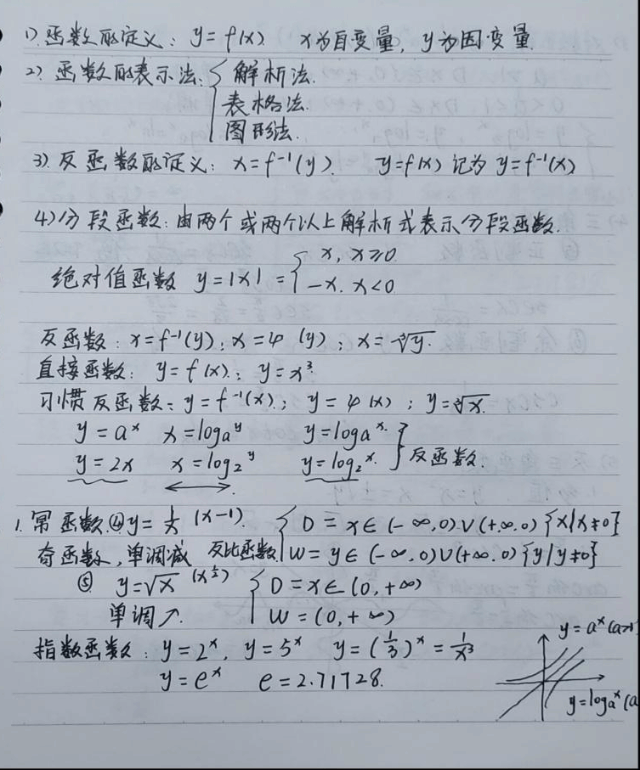 1) 函数的定义: y = f(x) x为自变量, y为因变量.
2) 函数的表示法 { 解析法.
表格法.
图形法.
3) 反函数的定义: x = f⁻¹(y). y=f(x) 记为 y=f⁻¹(x)
4) 分段函数: 由两个或两个以上解析式表示分段函数.
绝对值函数 y=|x|= { x, x≥0
-x. x<0
反函数: x=f⁻¹(y); x=φ(y); x=∛y.
直接函数: y=f(x); y=x³.
习惯反函数: y=f⁻¹(x); y=φ(x); y=∛x.
y=aˣ x=logₐʸ y=logₐˣ. } 反函数.
y=2x x=log₂ʸ y=log₂ˣ.
1. 幂函数 ④ y=1/x (x-1) { D=x∈(-∞,0)∪(+∞.0) {x|x≠0}
奇函数, 单调减 反比函数 W=y∈(-∞,0)∪(+∞.0) {y|y≠0}
⑤ y=√x (x^½) { D=x∈(0,+∞)
单调↗. W=(0,+∞)
指数函数: y=2ˣ, y=5ˣ y=(1/3)ˣ=1/x³
y=eˣ e=2.71728.
y=aˣ(a>1
y=logₐˣ(a